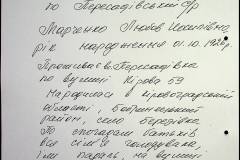 по Пересадівській с/р
Марченко Любов Йосипівна
рік народження 01.10.1926р.
Проживає в. Пересадівка
по вулиці Кірова 59
Народилася в Кіровоградській
області, Бобринецький
район, село Бередівка
По спогадам батьків
вся сім'я голодувала
їли падаль, на вулиці